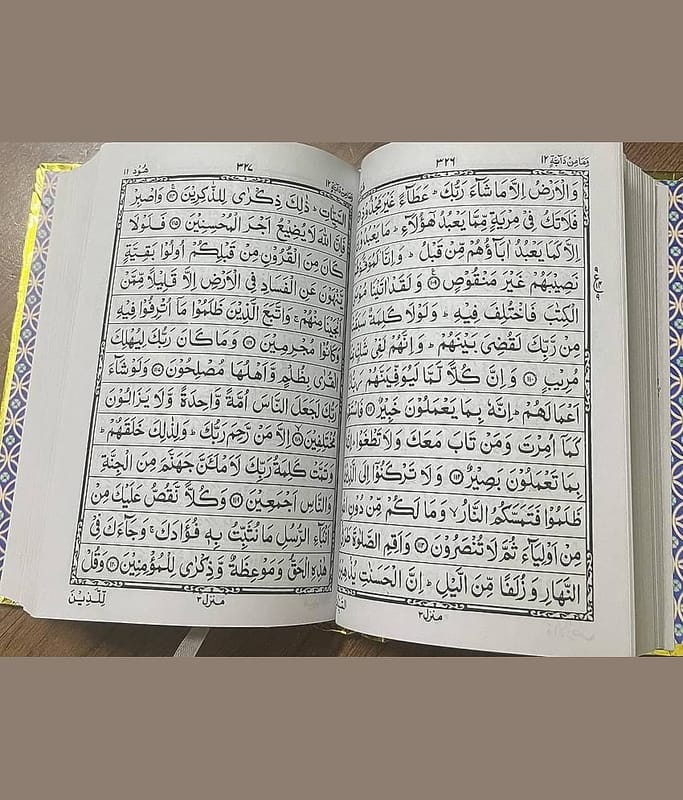 وَمَا مِنْ دَآبَّةٍ ١٢
٣٢٦
وَالْاَرْضُ اِلَّا مَا شَآءَ رَبُّكَ ؕ عَطَآءً غَيْرَ مَجْذُوْذٍ
فَلَا تَكُ فِيْ مِرْيَةٍ مِّمَّا يَعْبُدُ هٰۤؤُلَآءِ ؕ مَا يَعْبُدُوْنَ
اِلَّا كَمَا يَعْبُدُ اٰبَآؤُهُمْ مِّنْ قَبْلُ ؕ وَاِنَّا لَمُوَفُّوْهُمْ
نَصِيْبَهُمْ غَيْرَ مَنْقُوْصٍ ۝١٠٩ وَلَقَدْ اٰتَيْنَا مُوْسَى
الْكِتٰبَ فَاخْتُلِفَ فِيْهِ ؕ وَلَوْلَا كَلِمَةٌ سَبَقَتْ
مِنْ رَّبِّكَ لَقُضِيَ بَيْنَهُمْ ؕ وَاِنَّهُمْ لَفِيْ شَكٍّ مِّنْهُ
مُرِيْبٍ ۝١١٠ وَاِنَّ كُلًّا لَّمَّا لَيُوَفِّيَنَّهُمْ رَبُّكَ
اَعْمَالَهُمْ ؕ اِنَّهٗ بِمَا يَعْمَلُوْنَ خَبِيْرٌ ۝١١١ فَاسْتَقِمْ
كَمَاۤ اُمِرْتَ وَمَنْ تَابَ مَعَكَ وَلَا تَطْغَوْا ؕ
بِمَا تَعْمَلُوْنَ بَصِيْرٌ ۝١١٢ وَلَا تَرْكَنُوْۤا اِلَى الَّذِيْنَ
ظَلَمُوْا فَتَمَسَّكُمُ النَّارُ ۙ وَمَا لَكُمْ مِّنْ دُوْنِ اللّٰهِ
مِنْ اَوْلِيَآءَ ثُمَّ لَا تُنْصَرُوْنَ ۝١١٣ وَاَقِمِ الصَّلٰوةَ طَرَفَيِ
النَّهَارِ وَزُلَفًا مِّنَ الَّيْلِ ؕ اِنَّ الْحَسَنٰتِ يُذْهِبْنَ
منزل ٣
هُوْد ١١
٣٢٧
وَمَا مِنْ دَآبَّةٍ ١٢
السَّيِّاٰتِ ؕ ذٰلِكَ ذِكْرٰى لِلذّٰكِرِيْنَ ۝١١٤ وَاصْبِرْ
فَاِنَّ اللّٰهَ لَا يُضِيْعُ اَجْرَ الْمُحْسِنِيْنَ ۝١١٥ فَلَوْلَا
كَانَ مِنَ الْقُرُوْنِ مِنْ قَبْلِكُمْ اُولُوْا بَقِيَّةٍ
يَّنْهَوْنَ عَنِ الْفَسَادِ فِي الْاَرْضِ اِلَّا قَلِيْلًا مِّمَّنْ
اَنْجَيْنَا مِنْهُمْ ۚ وَاتَّبَعَ الَّذِيْنَ ظَلَمُوْا مَاۤ اُتْرِفُوْا فِيْهِ
وَكَانُوْا مُجْرِمِيْنَ ۝١١٦ وَمَا كَانَ رَبُّكَ لِيُهْلِكَ
الْقُرٰى بِظُلْمٍ وَّاَهْلُهَا مُصْلِحُوْنَ ۝١١٧ وَلَوْ شَآءَ
رَبُّكَ لَجَعَلَ النَّاسَ اُمَّةً وَّاحِدَةً وَّلَا يَزَالُوْنَ
مُخْتَلِفِيْنَ ۝١١٨ اِلَّا مَنْ رَّحِمَ رَبُّكَ ؕ وَلِذٰلِكَ خَلَقَهُمْ ؕ
وَتَمَّتْ كَلِمَةُ رَبِّكَ لَاَمْلَـَٔنَّ جَهَنَّمَ مِنَ الْجِنَّةِ
وَالنَّاسِ اَجْمَعِيْنَ ۝١١٩ وَكُلًّا نَّقُصُّ عَلَيْكَ مِنْ
اَنْۢبَآءِ الرُّسُلِ مَا نُثَبِّتُ بِهٖ فُؤَادَكَ ۚ وَجَآءَكَ فِيْ
هٰذِهِ الْحَقُّ وَمَوْعِظَةٌ وَّذِكْرٰى لِلْمُؤْمِنِيْنَ ۝١٢٠ وَقُلْ
منزل ٣
لِّلَّذِيْنَ